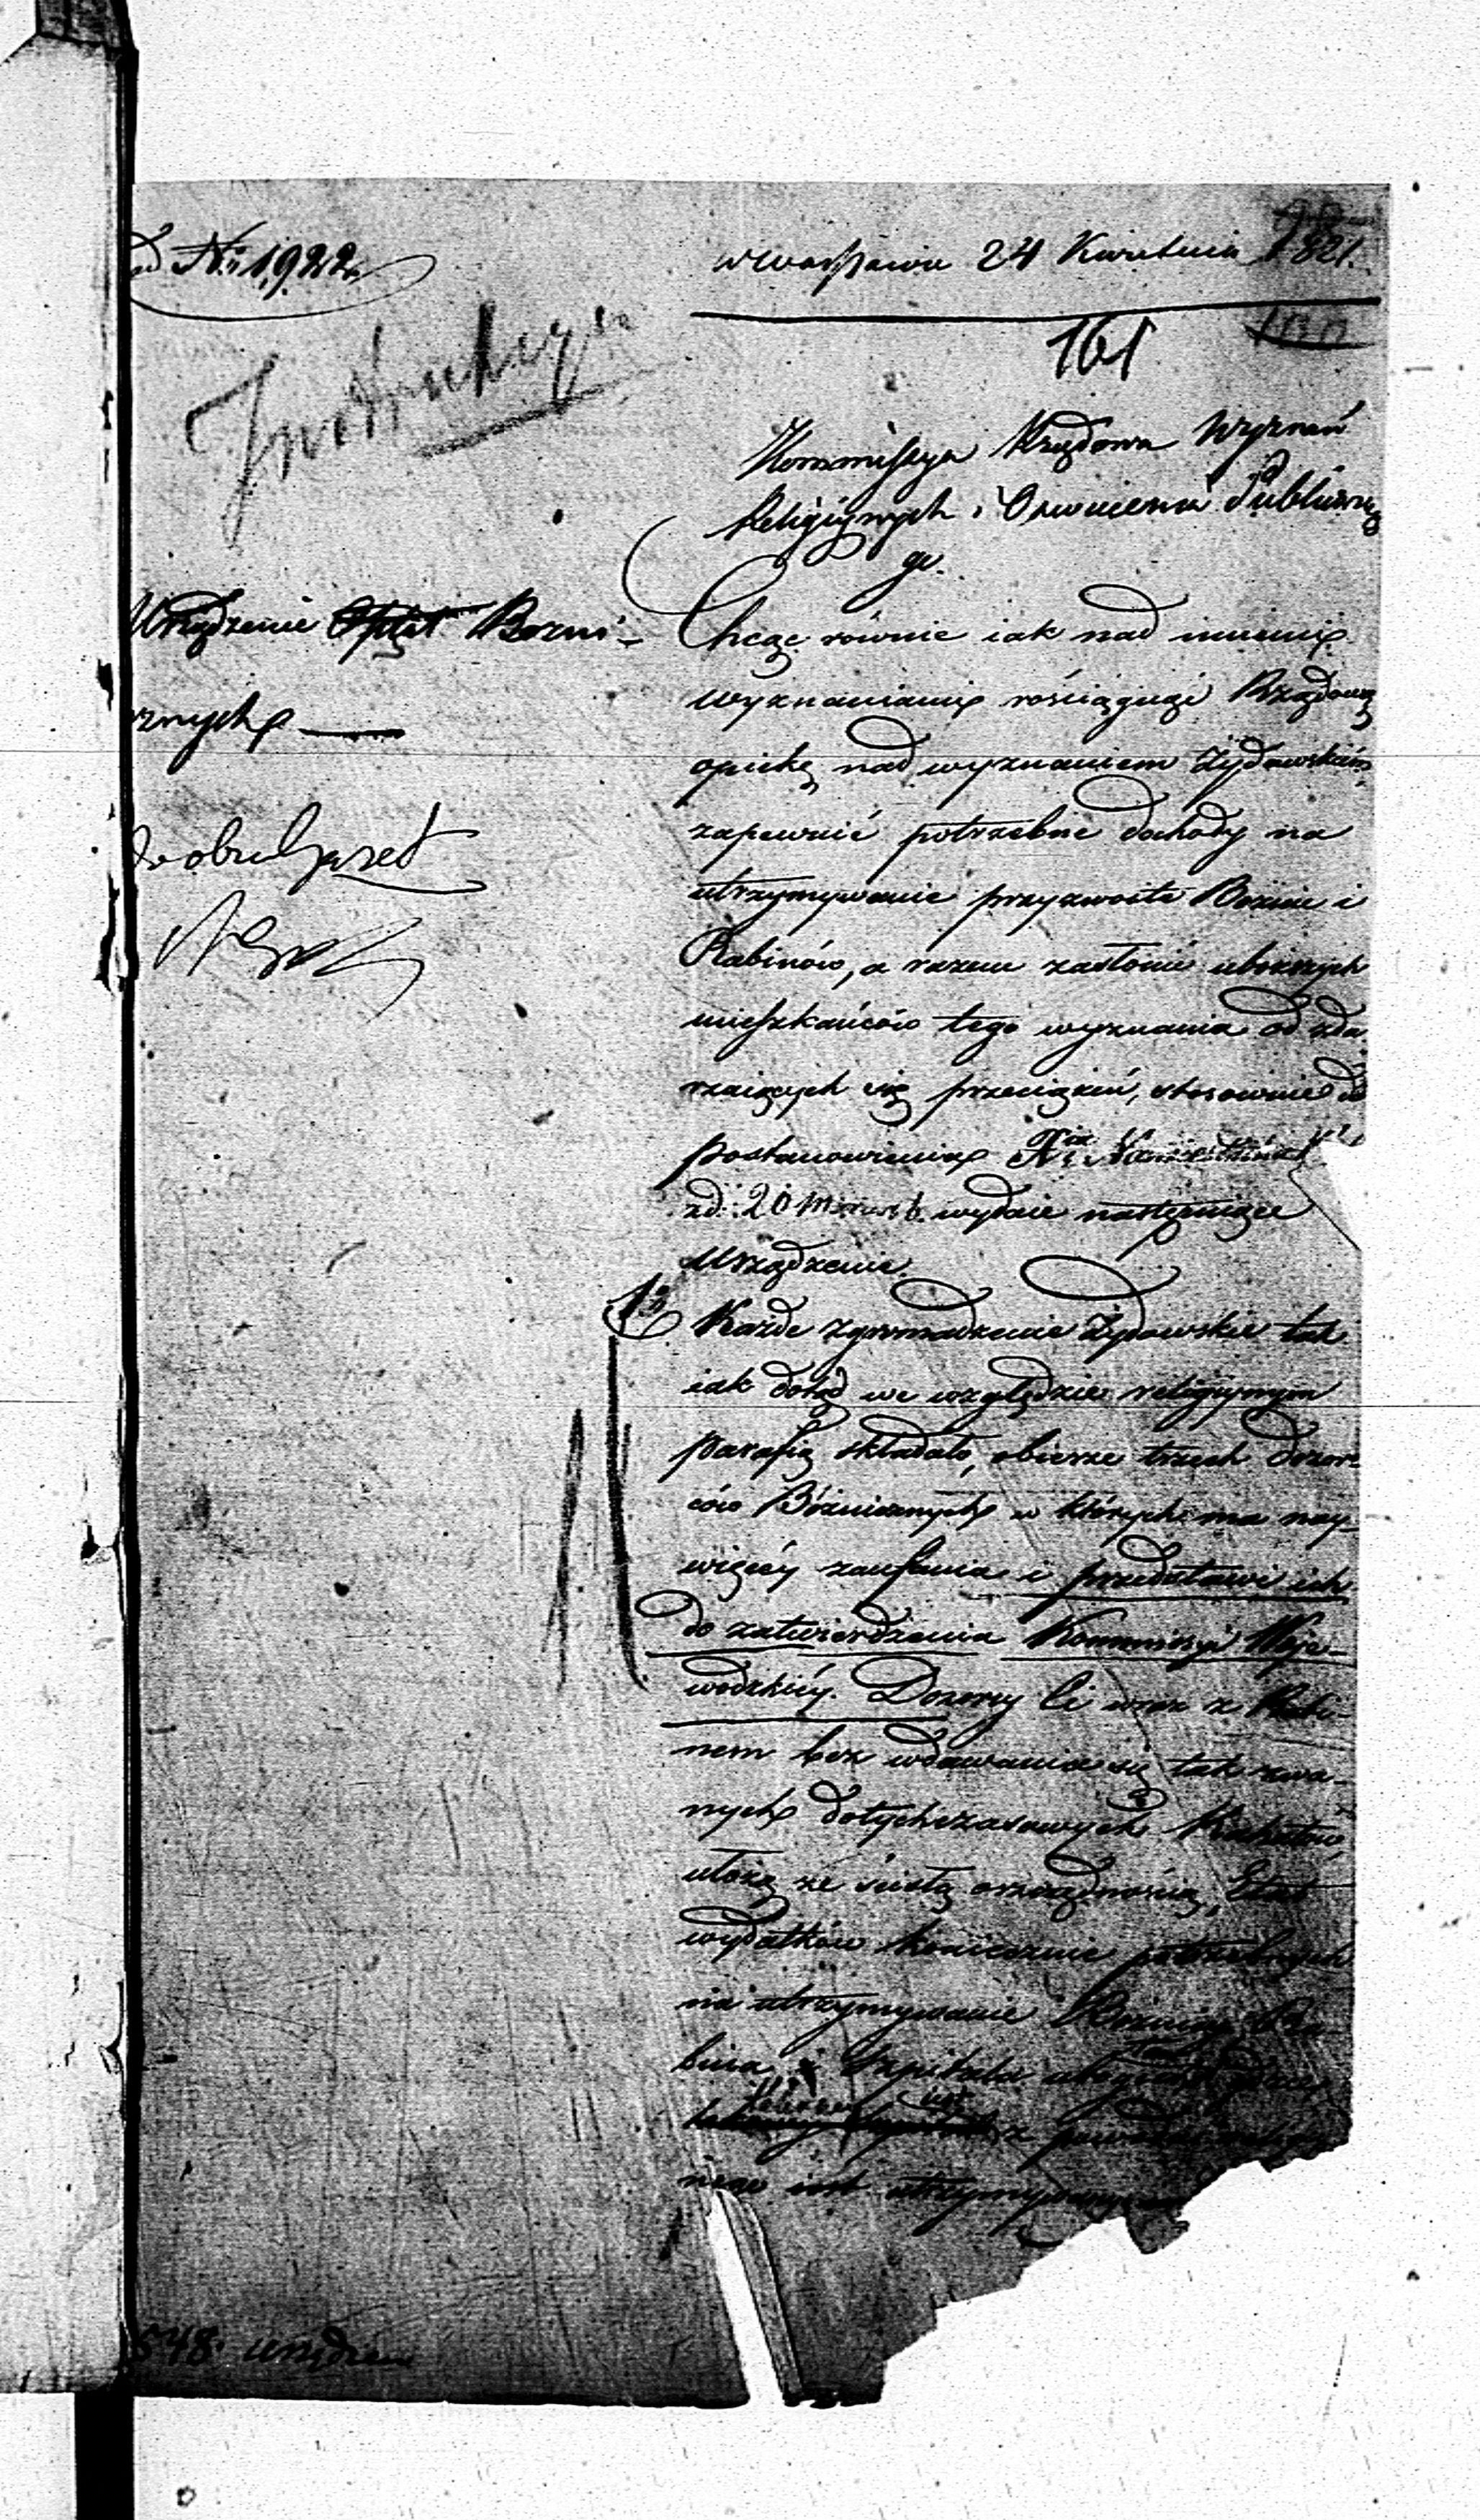 ad Nr: 1922.
w Warszawie 24 Kwietnia 1821.
161
Instrukcya
Kommissya Rządowa Wyznań
Religiynych i Oswiecenia Publiczne
go.
Urządzenie Opłat Bozni-
cznych
Chcąc równie iak nad innemi
wyznaniami rościągnąć Rządową
opiekę nad wyznaniem Żydowskim
zapewnić potrzebne dochody na
utrzymywanie przyzwoite Bożnic i
Rabinów, a razem zasłonić uboższych
mieszkańców tego wyznania od zda
rzaiących się przeciążeń, stosownie do
postanowienia Xia Namiestnika
zd: 20 Marca b. wydaie następuiące
Urządzenie.
1o Każde zgromadzenie Żydowskie tak
iak dotąd we względzie religiynym
parafię składało, obierze trzech dozor-
ców Bóżnicznych w których ma nay-
więcéy zaufania i przedstawi ich
do zatwierdzenia Kommissyi Woje-
wódzkiéy. Dozorcy Ci wraz z Rabi-
nem bez wdawania się tak zwa-
nych dotychczasowych Kahałów,
ułożą ze ścisłą oszczędnością Etat
wydatków koniecznie potrzebnych
na utrzymywanie Bożnicy, Ra-
bina i Szpitala
z
niego iest utrzymywany
548 urządzen